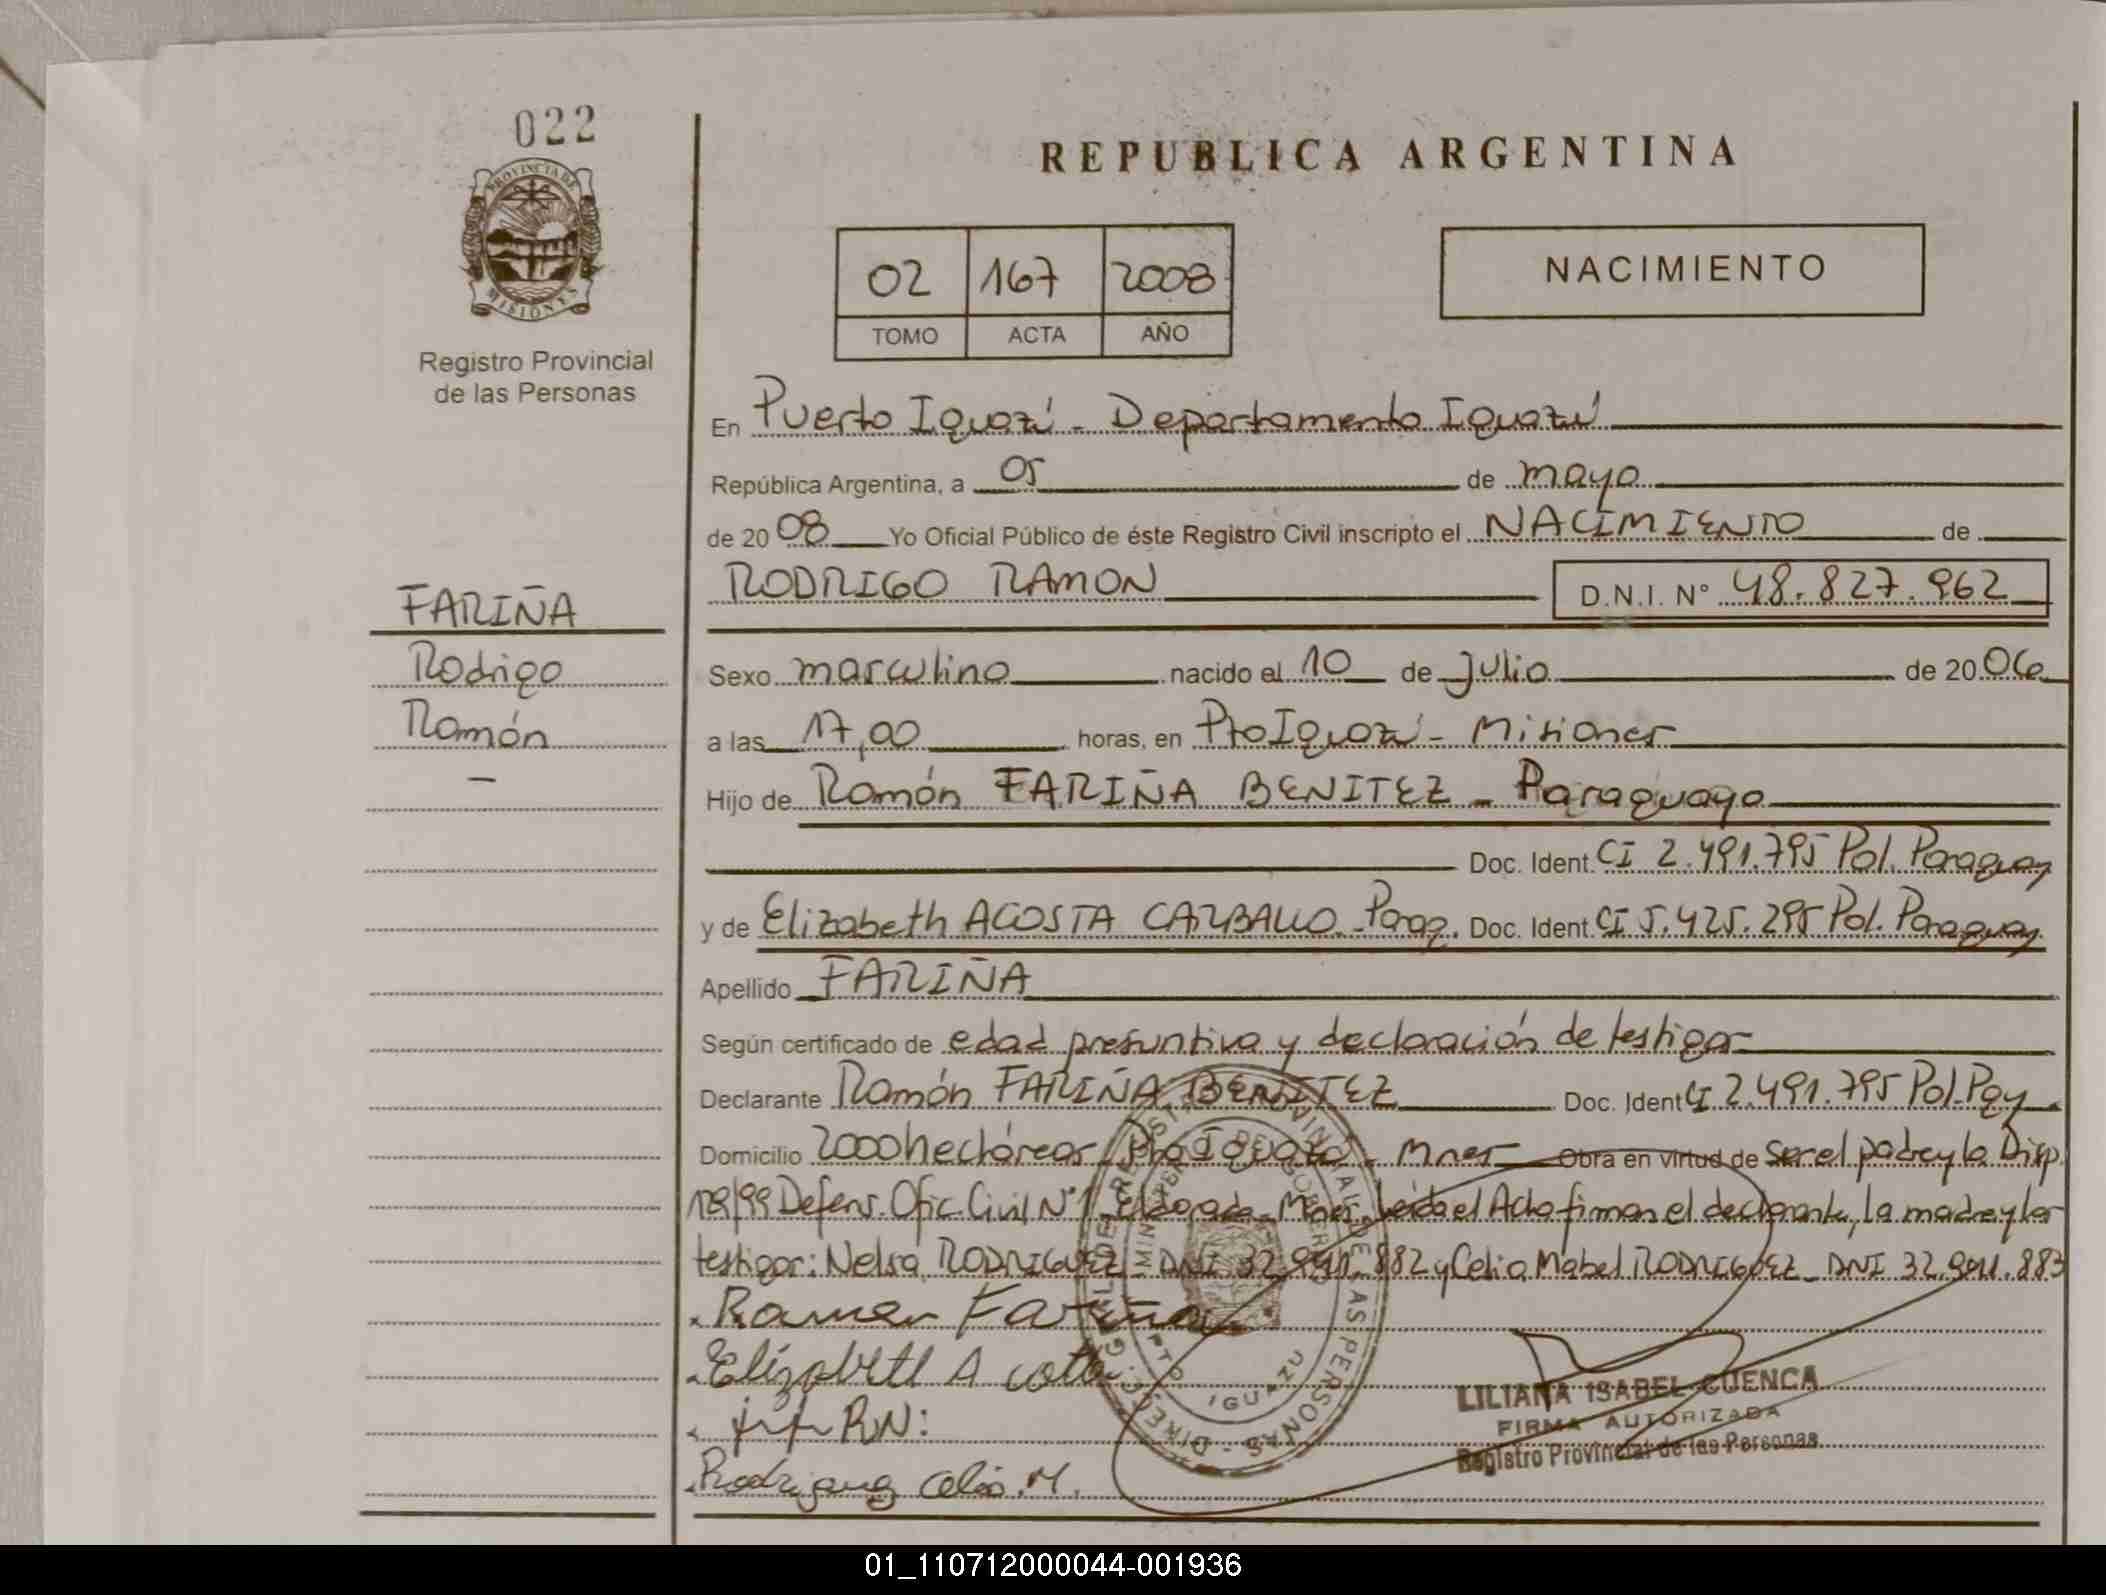 022
PROVINCIA DE
MISIONES
Registro Provincial
de las Personas
REPUBLICA ARGENTINA
02 167 2008
TOMO ACTA AÑO
NACIMIENTO
En Puerto Iguazú - Departamento Iguazú
República Argentina, a 05 de mayo
de 2008 Yo Oficial Público de éste Registro Civil inscripto el NACIMIENTO de
RODRIGO RAMON D.N.I. N° 48.827.962
FARIÑA
Rodrigo
Ramón
Sexo masculino nacido el 10 de Julio de 2006
a las 17,00 horas, en Pto Iguazú - Misiones
Hijo de Ramón FARIÑA BENITEZ - Paraguayo
Doc. Ident. CI 2.491.795 Pol. Paraguay
y de Elizabeth ACOSTA CARBALLO - Parag. Doc. Ident. CI 5.425.295 Pol. Paraguay
Apellido FARIÑA
Según certificado de edad presuntiva y declaración de testigos
Declarante Ramón FARIÑA BENITEZ Doc. Ident CI 2.491.795 Pol. Pgy
Domicilio 2000 hectáreas - Pto Iguazú - Mnes Obra en virtud de ser el padre y la Disp.
Defens. Ofic. Civil N°1 Eldorado - Mnes. Leída el Acta firman el declarante, la madre y los
testigos: Nelsa RODRIGUEZ DNI 32. 882 y Celia Mabel RODRIGUEZ - DNI 32. 883
Ramon Fariña
Elizabeth A costa
RN:
Celia. M.
LILIANA ISABEL CUENCA
FIRMA AUTORIZADA
Registro Provincial de las Personas
IGUAZU
01_110712000044-001936